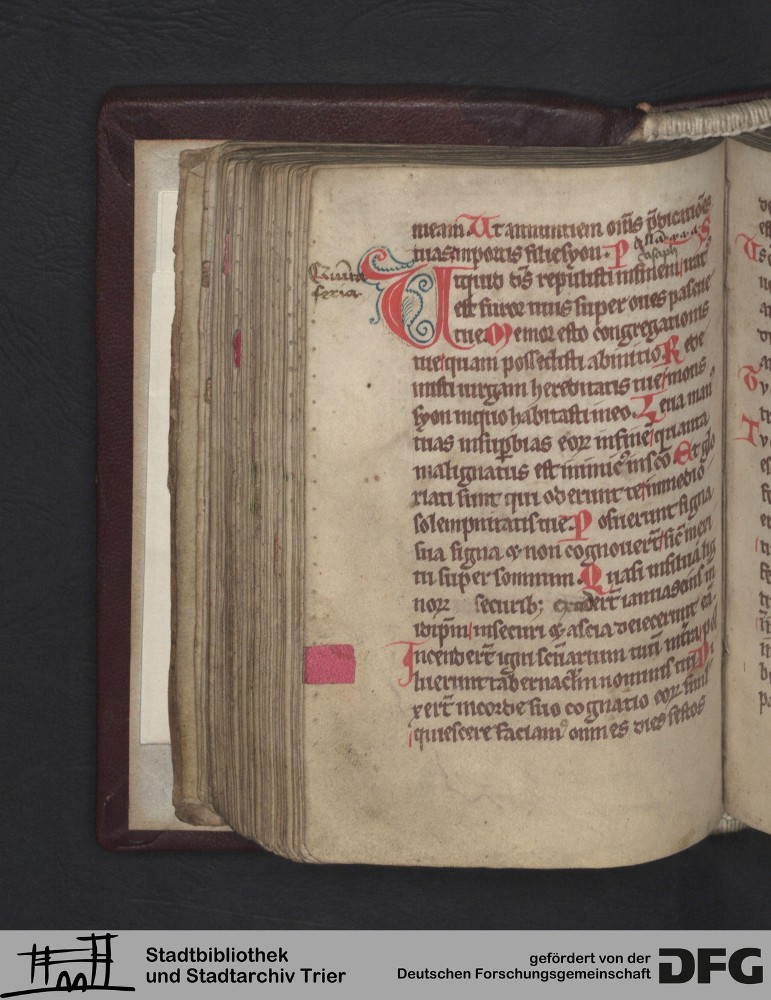 meam. Ut annuntiem om̅s p̅dicatio̅es
tuas in portis filie syon. P S
asaph
Quinta
feria
Ut quid d̅s repulisti in finem / irat9
est furor tuus super oues pascue
tue. Memor esto congregationis
tue / quam possedisti ab initio. Rede
misti uirgam hereditatis tue / mons
syon in quo habitasti in eo. Leua man9
tuas in sup̅bias eoꝝ in fine̅ / quanta
malignatus est inimic9 in sc̅o. Et glo
riati sunt qui oderunt te / in medio
solempnitatis tue. Posuerunt signa
sua signa et non cognouert̅ / sic̅ in exi
tu super summum. Quasi in silua lig
noꝝ securib; ert̅ ianuas
idip̅m / in securi et ascia deiecerunt ea̅.
Incendert̅ igni sc̅uarium tuu̅ in t̅ra / pol
luerunt tabernacl̅m nominis tui. Di
xert̅ in corde suo cognatio eoꝝ simul
/ quiescere faciam9 omnes dies festos
Stadtbibliothek
und Stadtarchiv Trier
gefördert von der
Deutschen Forschungsgemeinschaft
DFG